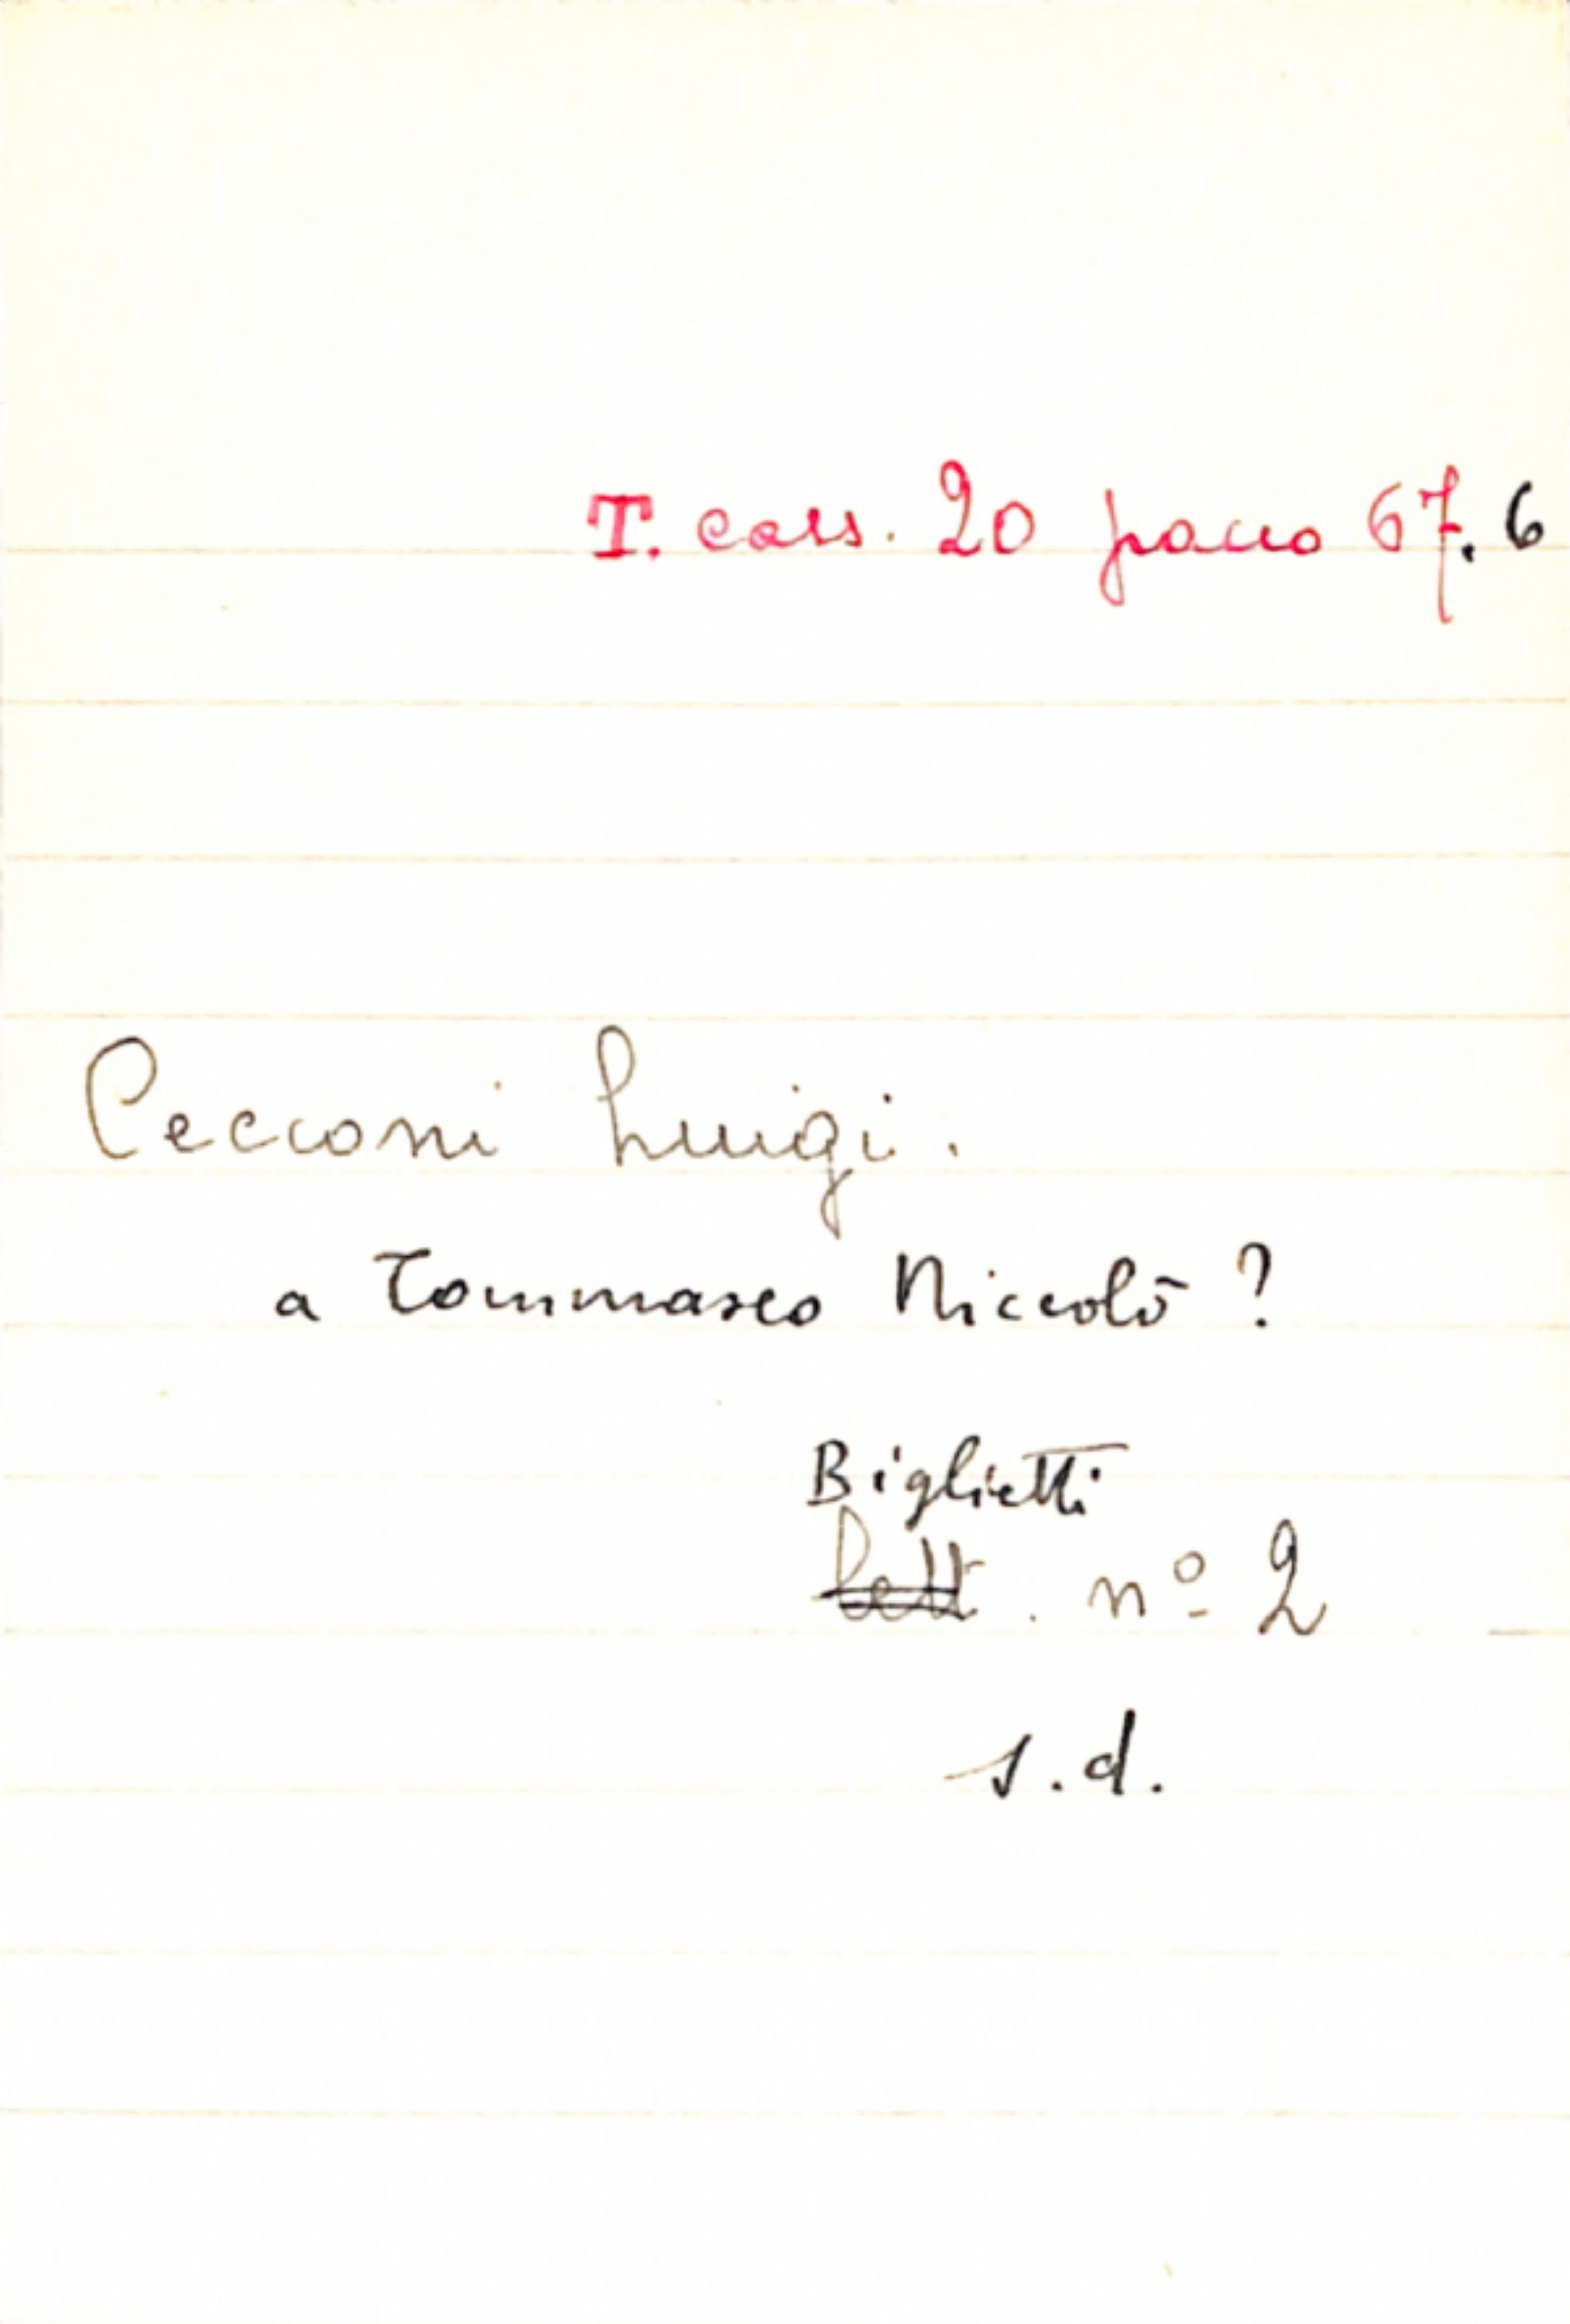 T. cass. 20 pacco 67.6
Cecconi Luigi.
a Tommaseo Niccolò ?
Biglietti
Lett. nº 2
s.d.